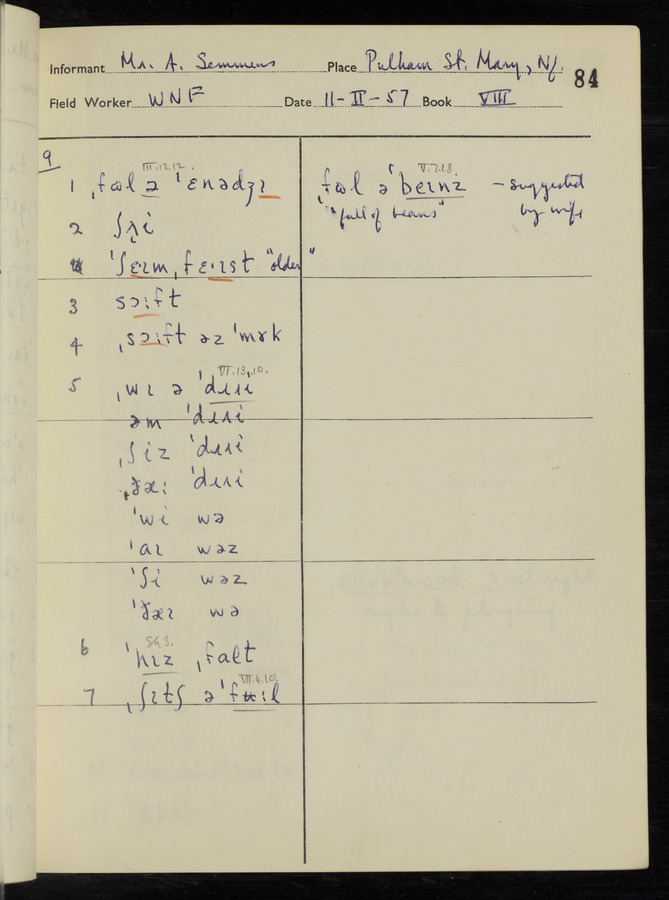 Informant Mr. A. Semmens Place Pulham St. Mary, Nf. 84
Field Worker WNF Date 11-II-57 Book VIII
9
III.13.12. V.7.18.
1 ˌfʊl ə ˈɛnədʒɪ ˌfʊl ə ˈbeɪnz – suggested
"full of beans" by wife
2
ˈʃɛɪm ˌfɛɪst "older"
3 sɔːft
4 ˌsɔːft əz ˈmɐk
VI.13.10.
5 ˌwɪ ə
əm
ˌʃiz
ˈwi wə
ˈaɪ wəz
ˈʃi wəz
wə
SG 3.
6 ˈhɪz ˌfalt
VII.4.10.
7 ˌʃɪtʃ ə ˈfʉːl